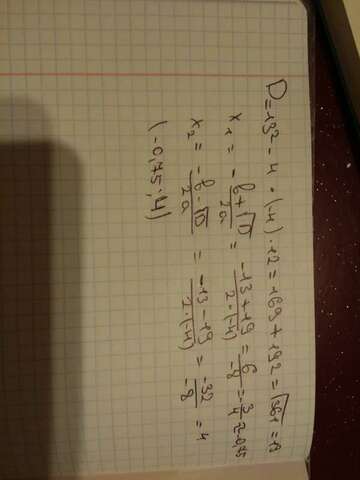 D = 13² - 4 · (-4) · 12 = 169 + 192 = √361 = 19
x₁ = (-b + √D)/2a = (-13 + 19)/(2 · (-4)) = 6/-8 = -3/4 = -0,75
x₂ = (-b - √D)/2a = (-13 - 19)/(2 · (-4)) = -32/-8 = 4
(-0,75 ; 4)